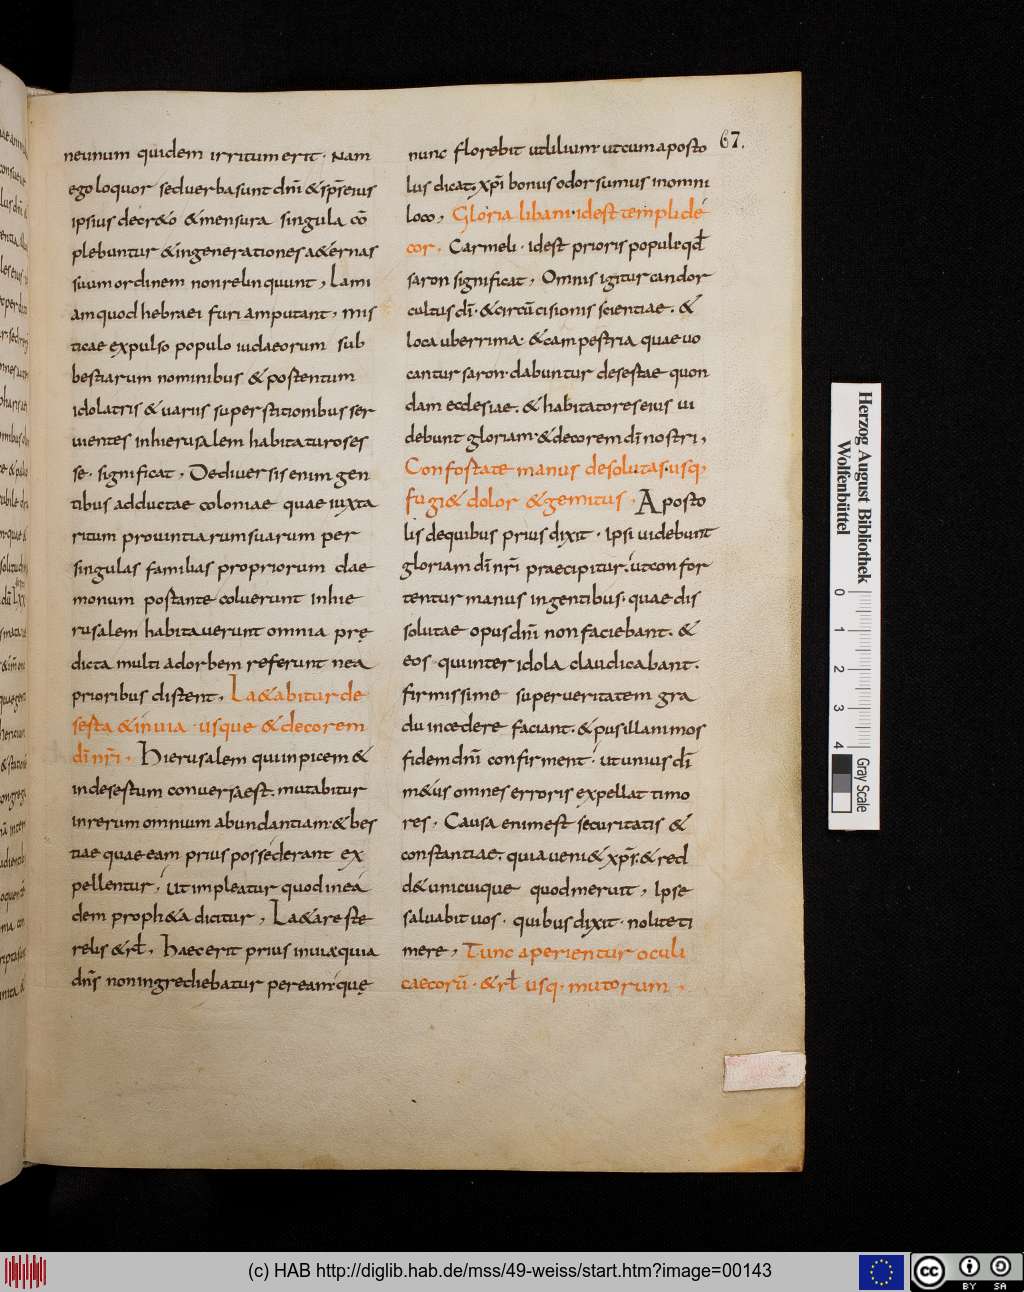 67.
neunum quidem irritum erit · Nam
ego loquor sed uerba sunt dñi & sp̄s eius
ipsius decr&o & mensura singula cō
plebuntur & in generationes a&ernas
suum ordinem non relinquunt, Lami
am quod hebraei furiam putant, mis
ticae expulso populo iudaeorum sub
bestiarum nominibus & postentum
idolatris & uariis superstitionibus ser
uientes in hierusalem habitaturos es
se · significat, De diuersis enim gen
tibus adductae coloniae quae iuxta
ritum prouintiarum suarum per
singulas familias propriorum dae
monum postante coluerunt in hie
rusalem habitauerunt omnia prę
dicta multi ad orbem referunt nea
prioribus distent, La&abitur de
sesta & inuia usque & decorem
dī nr̄i, Hierusalem qui inpicem &
in desestum conuersa est, mutabitur
in rerum omnium abundantiam & bes
tiae quae eam prius possederant ex
pellentur, Ut impleatur quod in ea
dem proph&a dicitur, La&are ste
relis & rł, Haec erit prius inuia quia
dñs non ingrediebatur per eam quę
nunc florebit ut lilium ut cum aposto
lus dicat, xp̄i bonus odor sumus in omni
loco, Gloria libani · id est templi de
cor, Carmeli · id est prioris populi qd̄
saron significat, Omnis igitur candor
cultus dī · & circūcisionis scientiae, &
loca uberrima · & campestria quae uo
cantur saron · dabuntur desestae quon
dam ecclesiae, & habitatores eius ui
debunt gloriam & decorem dī nostri,
Confostate manus desolutas · usq,
fugi& dolor & gemitus · Aposto
lis de quibus prius dixit · Ipsi uidebunt
gloriam dī nr̄i praecipitur, ut confor
tentur manus in gentibus · quae dis
solutae opus dñi non faciebant, &
eos · qui inter idola claudicabant,
firmissime super ueritatem gra
du incedere faciant, & pusillanimos
fidem dñi confirment · ut unius dī
m&us omnes erroris expellat timo
res, Causa enim est securitatis &
constantiae, quia ueni& xp̄s, & red
d& unicuique quod meruit, Ipse
saluabit uos · quibus dixit · nolite ti
mere, Tunc aperientur oculi
caecorū · & rł usq, mutorum,
Herzog August Bibliothek
Wolfenbüttel
0 1 2 3 4
Gray Scale
(c) HAB http://diglib.hab.de/mss/49-weiss/start.htm?image=00143
cc BY SA